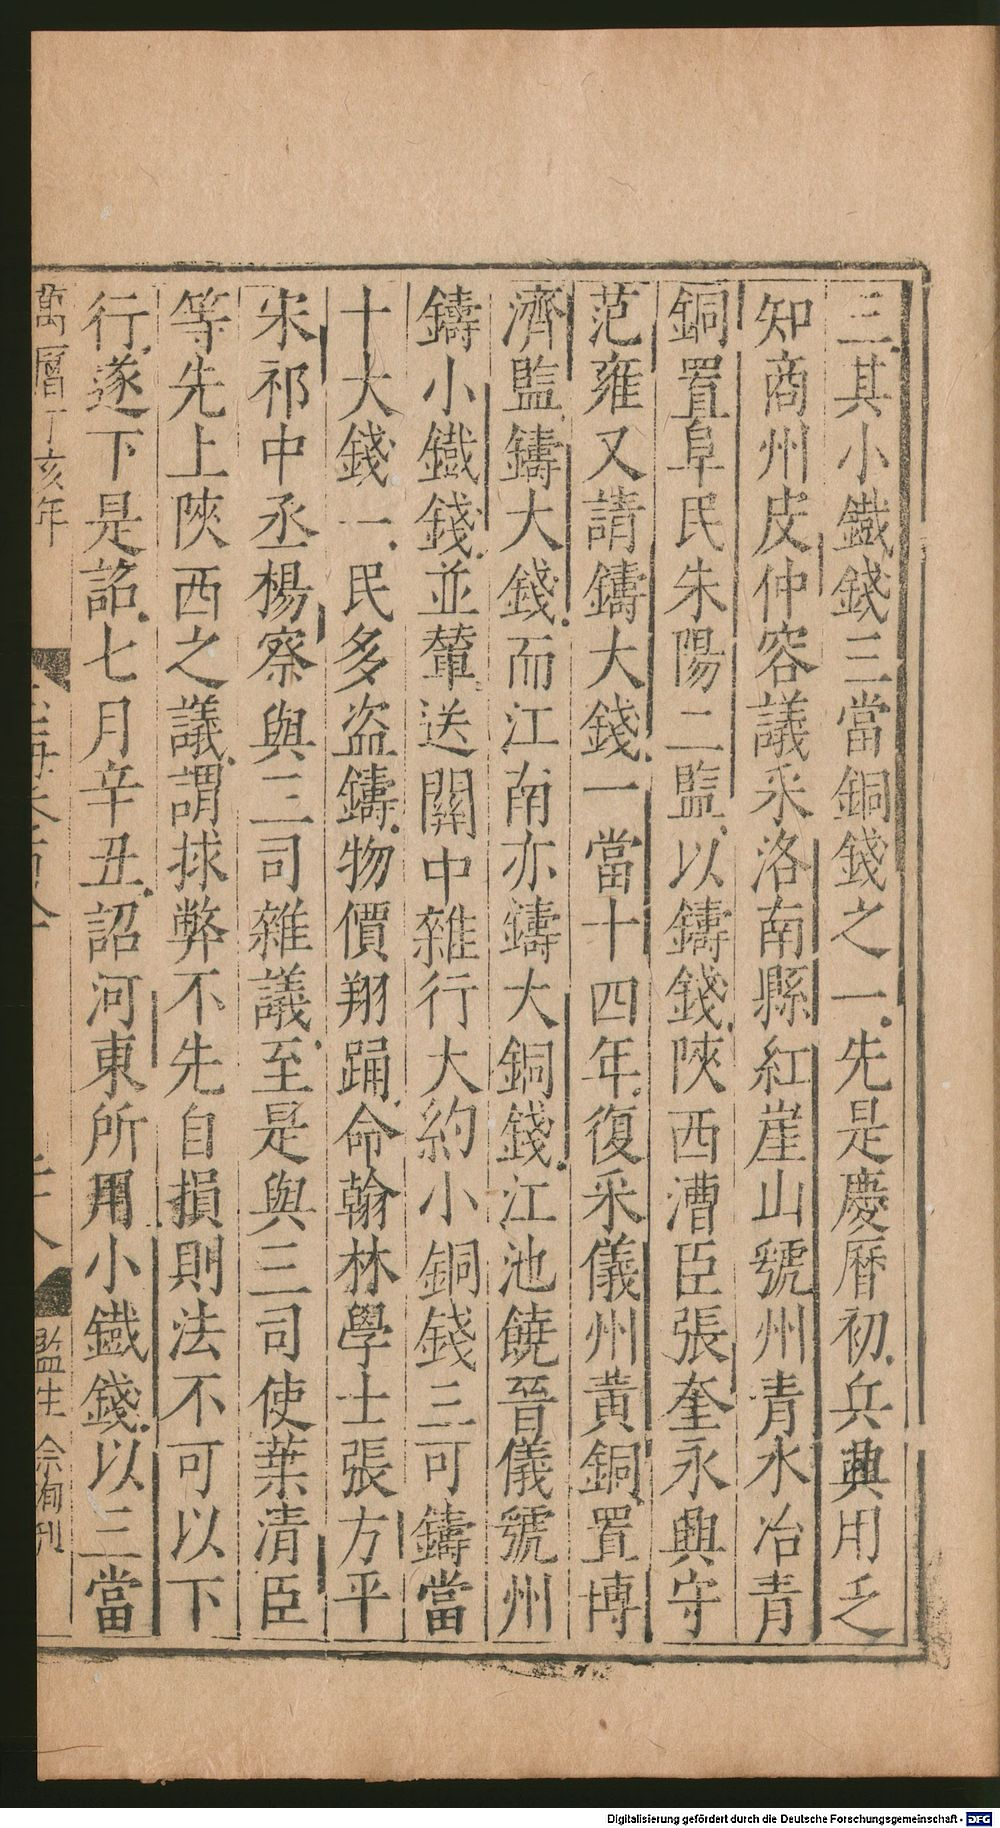 三其小鐵錢三當銅錢之一先是慶曆初兵興用乏
知商州皮仲容議采洛南縣紅崖山虢州青水冶青
銅置阜民朱陽二監以鑄錢陝西漕臣張奎永興守
范雍又請鑄大錢一當十四年復采儀州黃銅置博
濟監鑄大錢而江南亦鑄大銅錢江池饒晉儀虢州
鑄小鐵錢並輦送關中雜行大約小銅錢三可鑄當
十大錢一民多盜鑄物價翔踊命翰林學士張方平
宋祁中丞楊察與三司雜議至是與三司使葉清臣
等先上陝西之議謂捄弊不先自損則法不可以下
行遂下是詔七月辛丑詔河東所用小鐵錢以三當
萬曆丁亥年
監生
刊
Digitalisierung gefördert durch die Deutsche Forschungsgemeinschaft - DFG